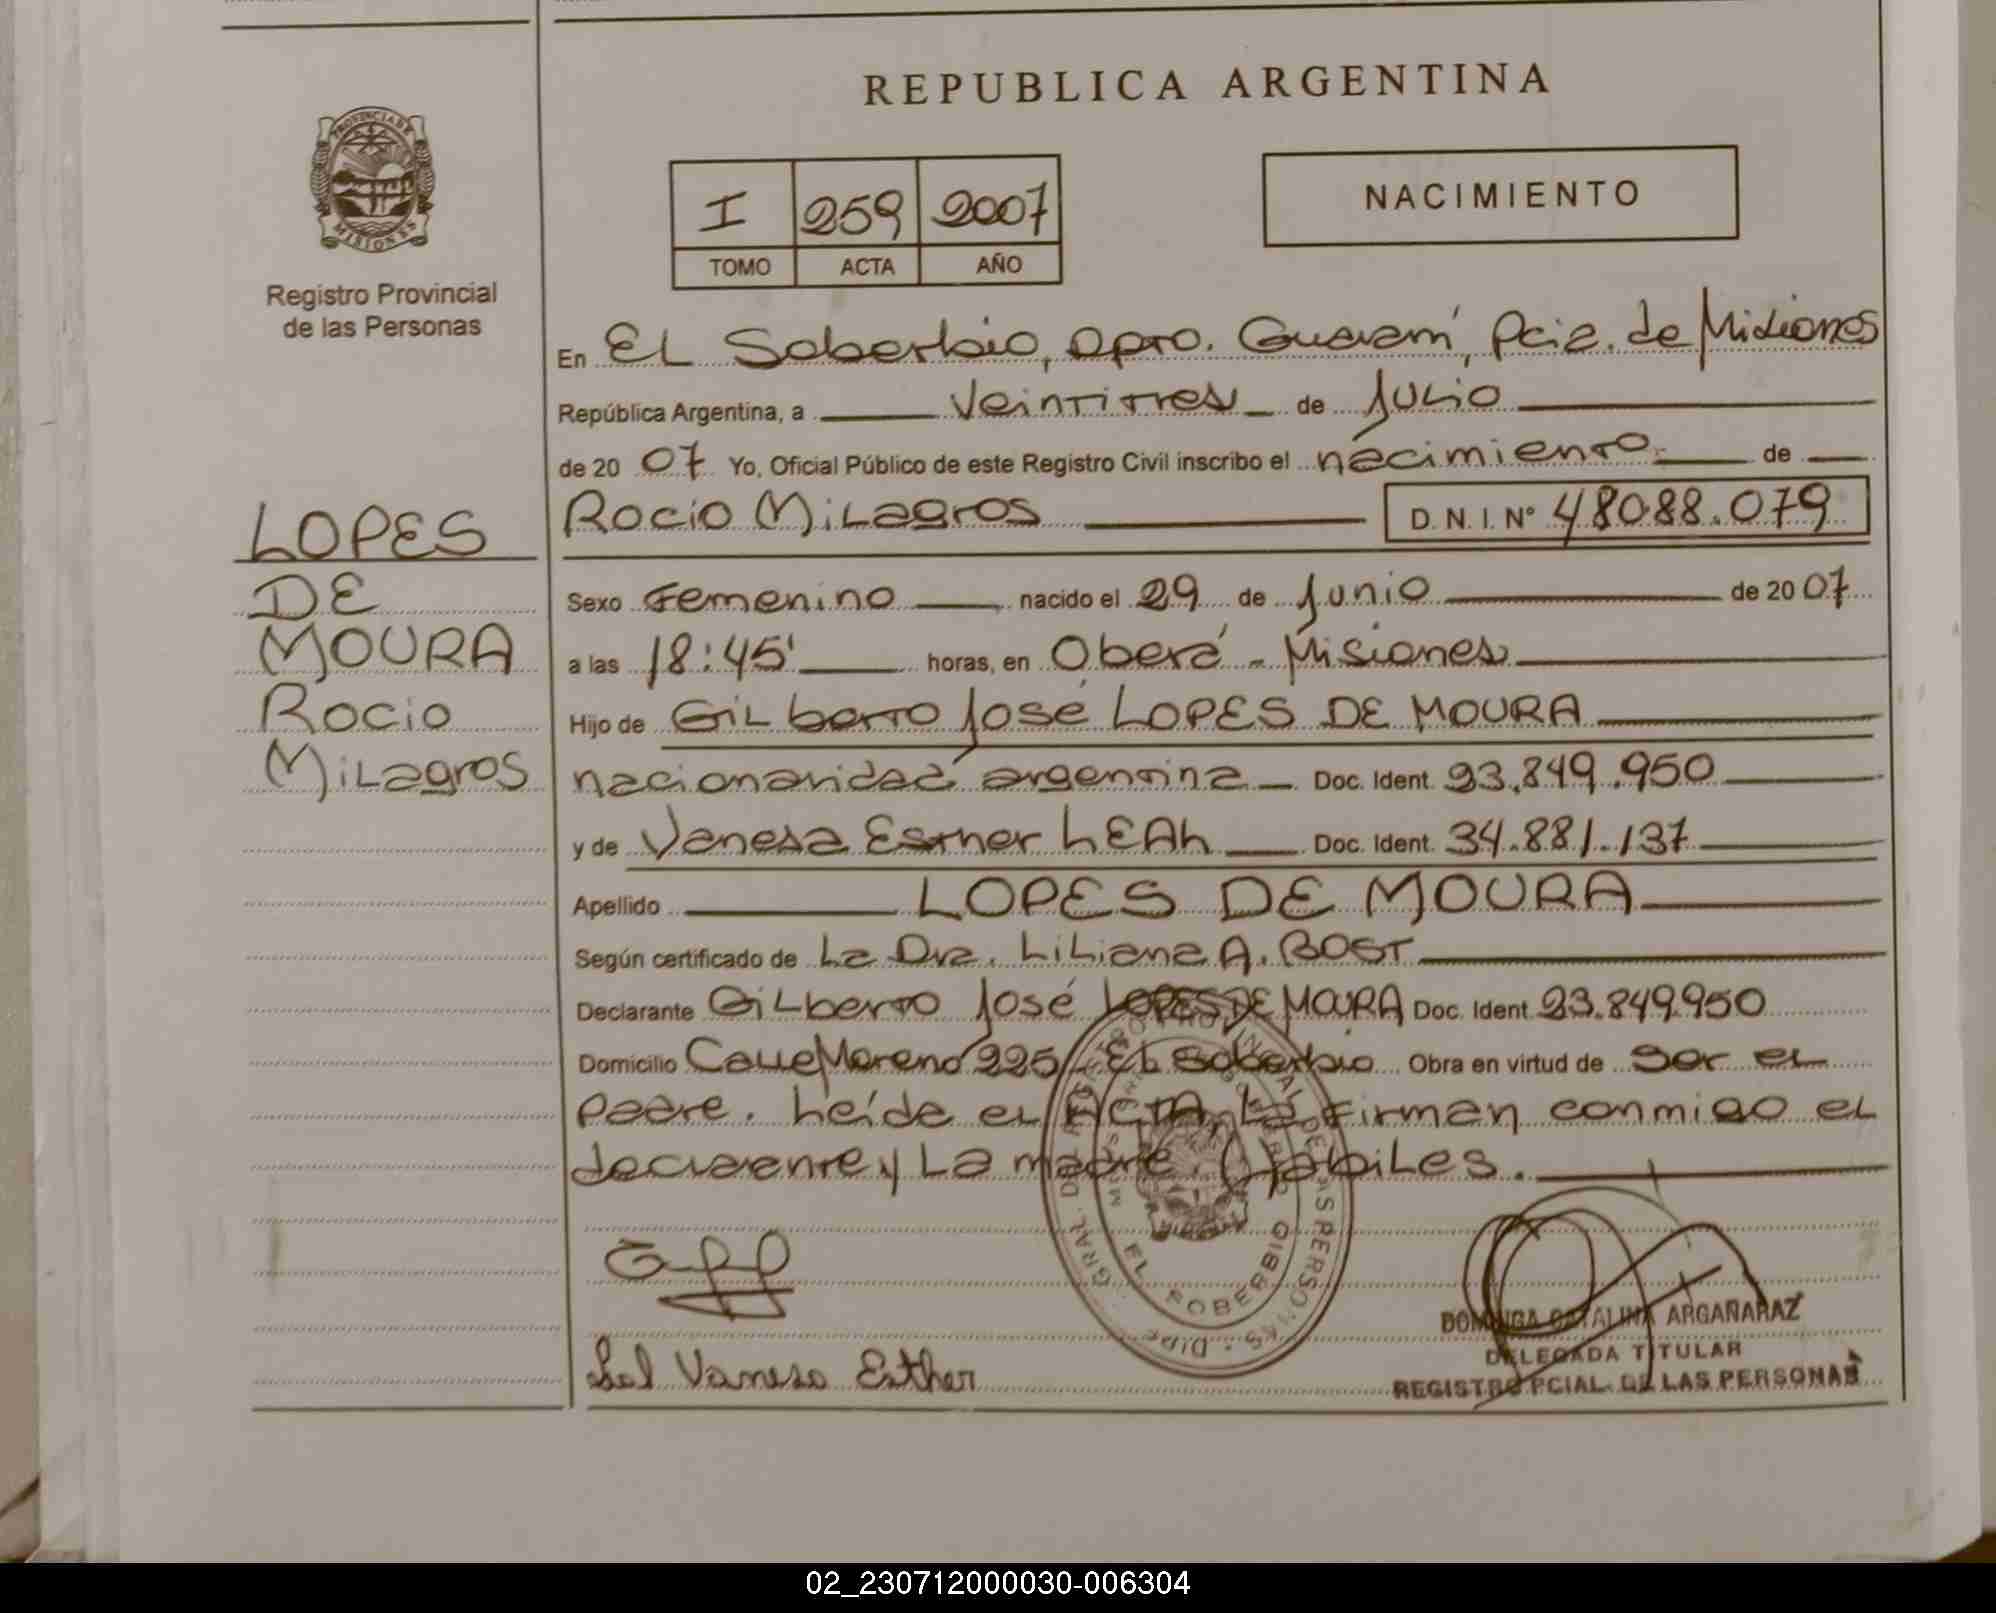 REPUBLICA ARGENTINA
PROVINCIA DE
MISIONES
Registro Provincial
de las Personas
I 259 2007
TOMO ACTA AÑO
NACIMIENTO
En EL Soberbio, Dpto. Guaraní, Pcia. de Misiones
República Argentina, a Veintitres de Julio
de 2007 Yo, Oficial Público de este Registro Civil inscribo el nacimiento de
Rocio Milagros D. N. I. Nº 48088.079
LOPES
DE
MOURA
Rocio
Milagros
Sexo Femenino nacido el 29 de Junio de 2007
a las 18:45' horas, en Oberá - Misiones
Hijo de Gilberto José LOPES DE MOURA
nacionalidad argentina Doc. Ident. 93.849.950
y de Vanesa Esther LEAL Doc. Ident. 34.881.137
Apellido LOPES DE MOURA
Según certificado de La Dra. Liliana A. BOST
Declarante Gilberto José LOPES DE MOURA Doc. Ident. 93.849.950
Domicilio Calle Moreno 225 EL Soberbio Obra en virtud de ser el
padre. Leída el ACTA, La firman conmigo el
declarante y La madre Hábiles.
EL SOBERBIO
Leal Vanesa Esther
DOMINGA CATALINA ARGAÑARAZ
DELEGADA TITULAR
REGISTRO PCIAL. DE LAS PERSONAS
02_230712000030-006304